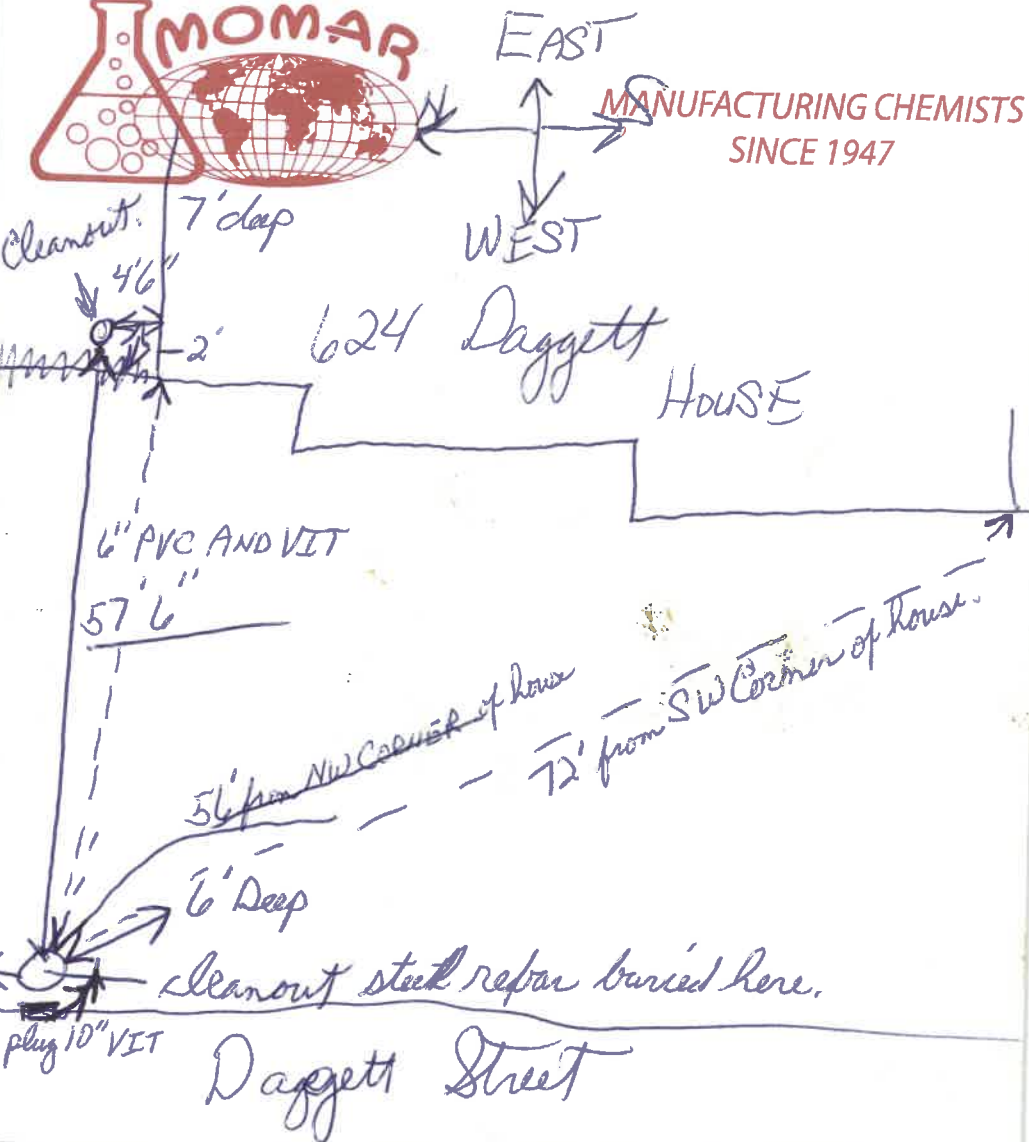 MOMAR
EAST
N
S
MANUFACTURING CHEMISTS
SINCE 1947
WEST
Cleanout.
7' deep
4'6"
2'
624 Daggett
HOUSE
6" PVC AND VIT
57'6"
56' from NW CORNER of house
72' from SW Corner of house.
6' Deep
cleanout steel rebar buried here.
plug 10" VIT
Daggett Street